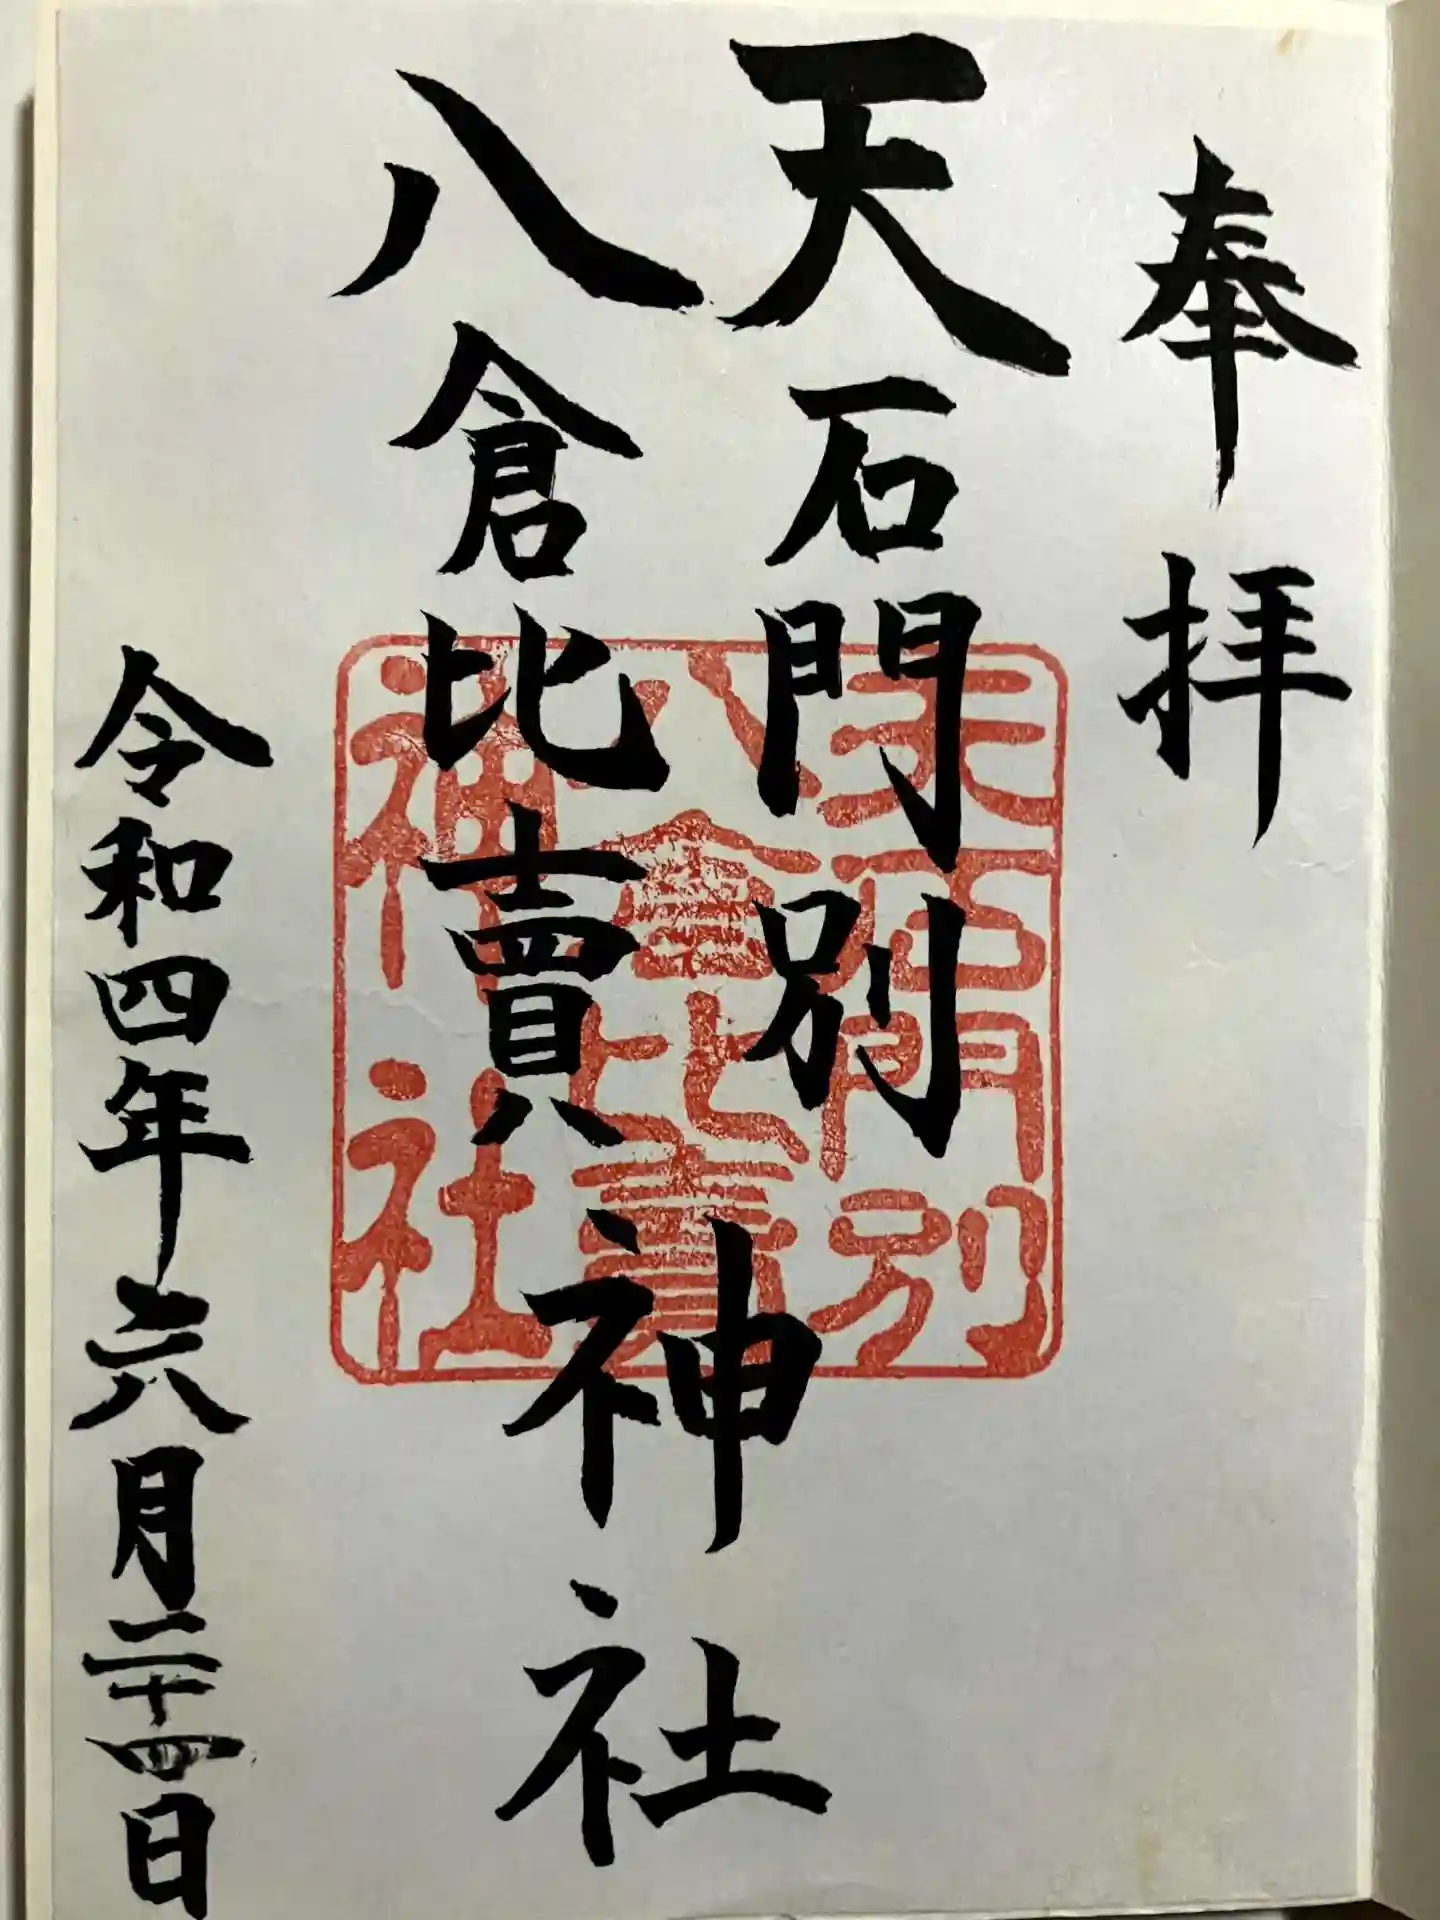 奉拝
天石門別
八倉比賣
神社
令和四年六月二十四日
天石門別
八倉比賣
神社